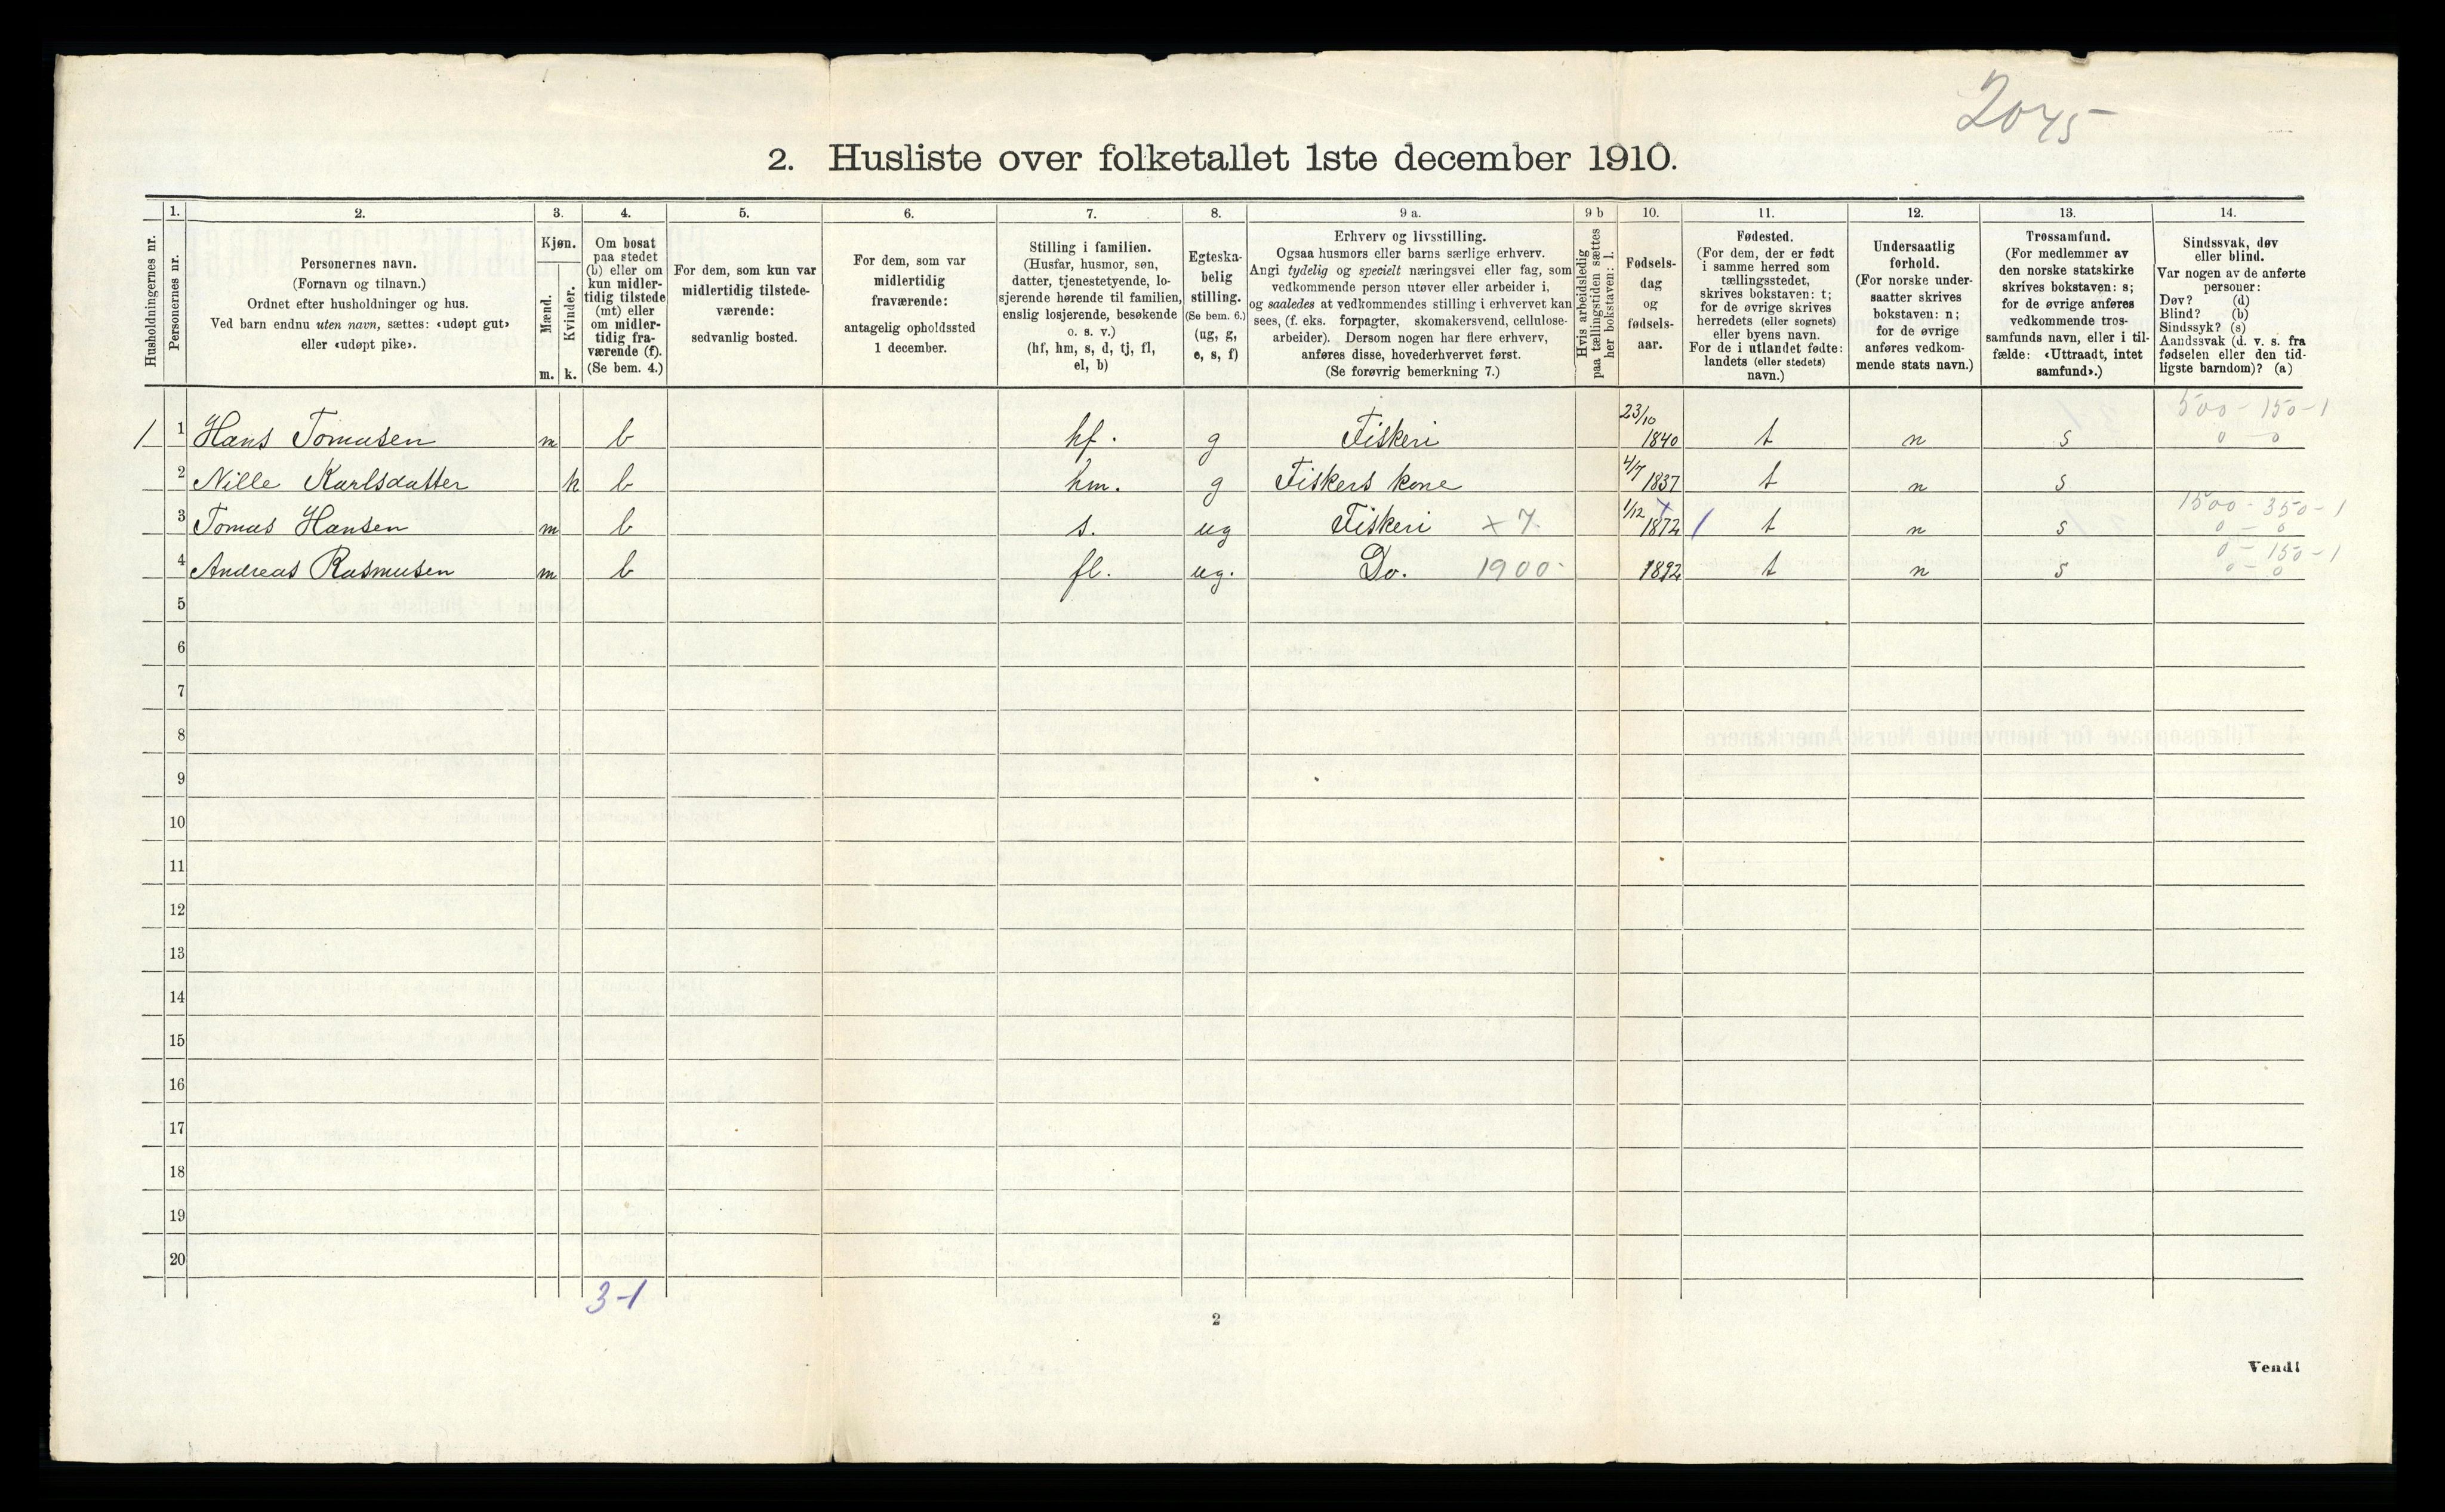 2045
2. Husliste over folketallet 1ste december 1910.
Husholdningernes nr.
1.
Personernes nr.
2.
Personernes navn.
(Fornavn og tilnavn.)
Ordnet efter husholdninger og hus.
Ved barn endnu uten navn, sættes: «udøpt gut»
eller «udøpt pike».
3.
Kjøn.
Mænd.
Kvinder.
m. k.
4.
Om bosat
paa stedet
(b) eller om
kun midler-
tidig tilstede
(mt) eller
om midler-
tidig fra-
værende (f).
(Se bem. 4.)
5.
For dem, som kun var
midlertidig tilstede-
værende:
sedvanlig bosted.
6.
For dem, som var
midlertidig
fraværende:
antagelig opholdssted
1 december.
7.
Stilling i familien.
(Husfar, husmor, søn,
datter, tjenestetyende, lo-
sjerende hørende til familien,
enslig losjerende, besøkende
o. s. v.)
(hf, hm, s, d, tj, fl,
el, b)
8.
Egteska-
belig
stilling.
(Se bem. 6.)
(ug, g,
e, s, f)
9 a.
Erhverv og livsstilling.
Ogsaa husmors eller barns særlige erhverv.
Angi tydelig og specielt næringsvei eller fag, som
vedkommende person utøver eller arbeider i,
og saaledes at vedkommendes stilling i erhvervet kan
sees, (f. eks. forpagter, skomakersvend, cellulose-
arbeider). Dersom nogen har flere erhverv,
anføres disse, hovederhvervet først.
(Se forøvrig bemerkning 7.)
9 b
Hvis arbeidsledig
paa tællingstiden sættes
her bokstaven: l.
10.
Fødsels-
dag
og
fødsels-
aar.
11.
Fødested.
(For dem, der er født
i samme herred som
tællingsstedet,
skrives bokstaven: t;
for de øvrige skrives
herredets (eller sognets)
eller byens navn.
For de i utlandet fødte:
landets (eller stedets)
navn.)
12.
Undersaatlig
forhold.
(For norske under-
saatter skrives
bokstaven: n;
for de øvrige
anføres vedkom-
mende stats navn.)
13.
Trossamfund.
(For medlemmer av
den norske statskirke
skrives bokstaven: s;
for de øvrige anføres
vedkommende tros-
samfunds navn, eller i til-
fælde: «Uttraadt, intet
samfund».)
14.
Sindssvak, døv
eller blind.
Var nogen av de anførte
personer:
Døv? (d)
Blind? (b)
Sindssyk? (s)
Aandssvak (d. v. s. fra
fødselen eller den tid-
ligste barndom)? (a)
1 1 Hans Tomasen m b hf. g Fiskeri 23/10 1840 t n s 500 - 150 - 1
0 - 0
2 Nille Karlsdatter k b hm. g Fiskers kone 4/7 1837 t n s
3 Tomas Hansen m b s. ug Fiskeri x 7 1/12 1872 t n s 1500 - 350 - 1
0 - 0
4 Andreas Rasmusen m b fl. ug. Do. 1900 1892 t n s 0 - 150 - 1
0 - 0
5
6
7
8
9
10
11
12
13
14
15
16
17
18
19
20
3-1
2
Vend!